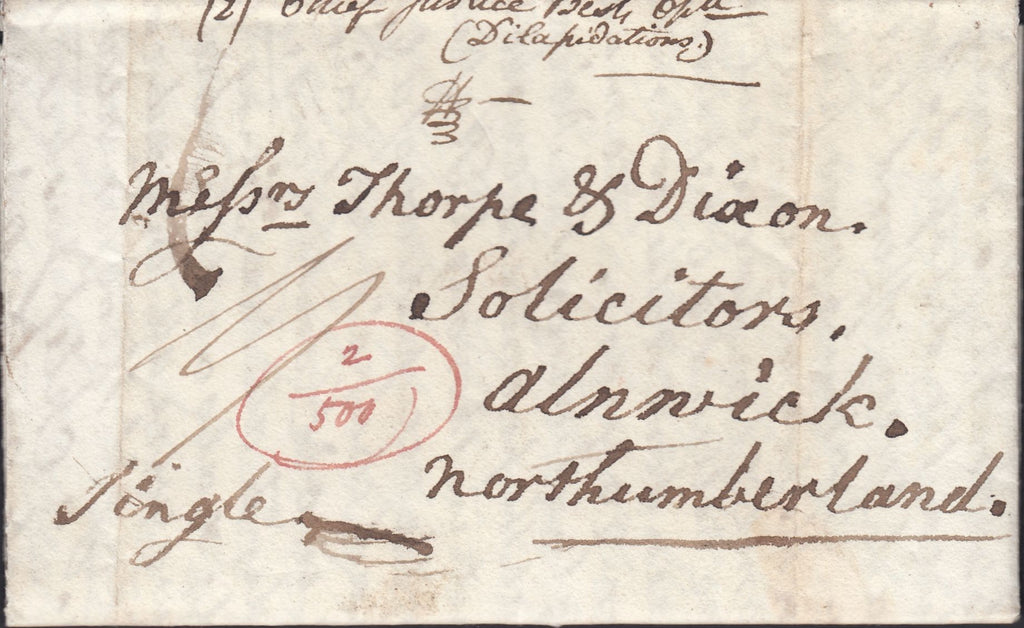 (2) Chief Justice Best,
(Dilapidations)
Messrs Thorpe & Dixon.
Solicitors.
2
500
Alnwick.
Northumberland.
Single